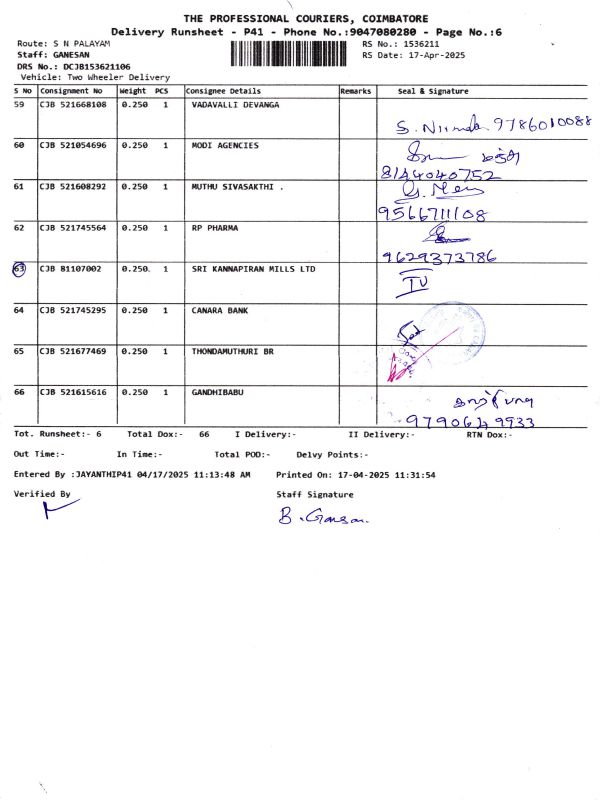 THE PROFESSIONAL COURIERS, COIMBATORE
Delivery Runsheet - P41 - Phone No.:9047080280 - Page No.:6
Route: S N PALAYAM
RS No.: 1536211
Staff: GANESAN
RS Date: 17-Apr-2025
DRS No.: DCJB153621106
Vehicle: Two Wheeler Delivery
S No Consignment No Weight PCS Consignee Details Remarks Seal & Signature
59 CJB 521668108 0.250 1 VADAVALLI DEVANGA
9786010088
60 CJB 521054696 0.250 1 MODI AGENCIES
8144040752
61 CJB 521608292 0.250 1 MUTHU SIVASAKTHI .
9566711108
62 CJB 521745564 0.250 1 RP PHARMA
9629373786
63 CJB 81107002 0.250. 1 SRI KANNAPIRAN MILLS LTD
IV
64 CJB 521745295 0.250 1 CANARA BANK
65 CJB 521677469 0.250 1 THONDAMUTHURI BR
66 CJB 521615616 0.250 1 GANDHIBABU
காந்திபாபு
9790649933
Tot. Runsheet:- 6 Total Dox:- 66 I Delivery:- II Delivery:- RTN Dox:-
Out Time:- In Time:- Total POD:- Delvy Points:-
Entered By :JAYANTHIP41 04/17/2025 11:13:48 AM Printed On: 17-04-2025 11:31:54
Verified By Staff Signature
B. Ganesan.